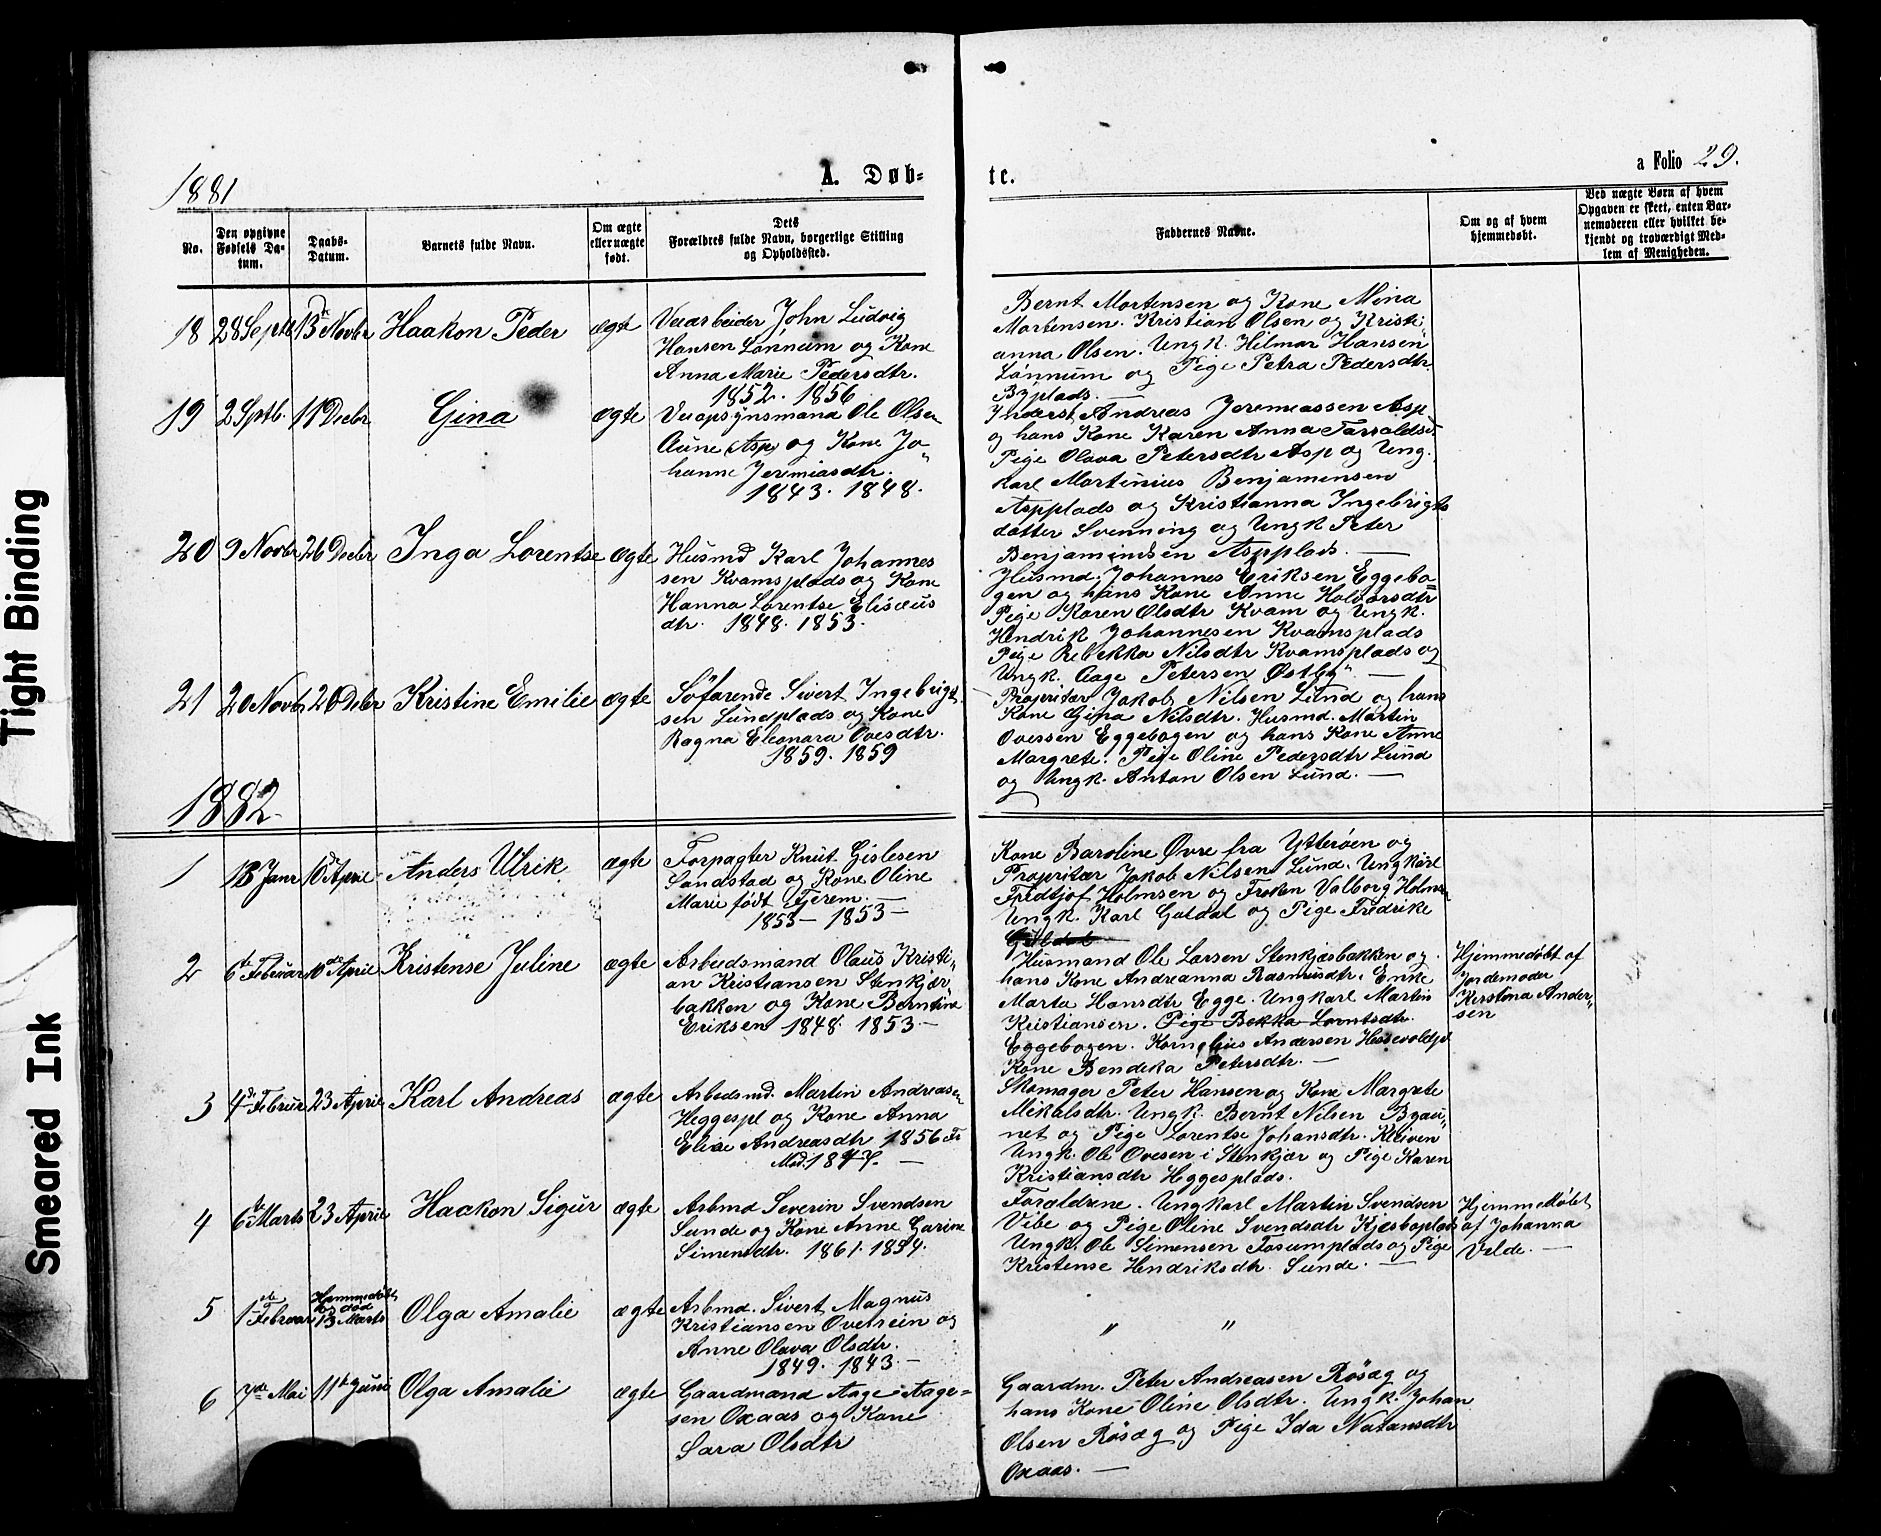 Tight Binding
Smeared Ink
1881
A. Døb-
te.
a Folio 29.
No.
Den opgivne
Fødsels Da-
tum.
Daabs-
Datum.
Barnets fulde Navn.
Om ægte
eller uægte
født.
Dets
Forældres fulde Navn, borgerlige Stilling
og Opholdssted.
Faddernes Navne.
Om og af hvem
hjemmedøbt.
Ved uægte Børn af hvem
Opgaven er skeet, enten Bar-
nemoderen eller hvilket be-
kjendt og troværdigt Med-
lem af Menigheden.
18 28 Septb 13de Novbr Haakon Peder ægte
Veiarbeider John Ludvig
Hansen Lønnum og Kone
Anna Marie Pedersdtr.
1852. 1856
Bernt Mortensen og Kone Mina
Mortensen. Kristian Olsen og Kristi-
anna Olsen. Ungk. Hilmar Hansen
Lønnum og Pige Petra Pedersdtr
Byplads.
19 2 Sptb. 11 Decbr Gina ægte
Veiopsynsmand Ole Olsen
Aune Asp og Kone Jo-
hanne Jeremiasdtr.
1843. 1848.
Inderst Andreas Jeremiassen Asp
og hans Kone Karen Anna Taraldsdt
Pige Olava Petersdtr Asp og Ung-
karl Martinius Benjamensen
Aspplads og Kristianna Ingebrigts
datter Svenning og Ungk Peter
Benjamindsen Aspplads.
20 9 Novbr 26 Decbr Inga Lorentse ægte
Husmd Karl Johannes
sen Kvamsplads og Kone
Hanna Lorentse Elisæus
dtr. 1848. 1853.
Husmd. Johannes Eriksen Eggebo
gen og hans Kone Anne Halvorsdtr
Pige Karen Olsdtr Kvam og Ungk.
Hendrik Johannesen Kvamsplads
Pige Rebekka Nilsdtr Kvamsplads og
Ungk. Aage Petersen Østby
21 20 Novb 26 Decbr Kristine Emilie ægte
Søfarende Sivert Ingebrigt
sen Lundplads og Kone
Ragna Eleonara Ovesdtr.
1859. 1859
Propritær Jakob Nilsen Lund og hans
Kone Gina Nilsdtr. Husmd. Martin
Ovessen Eggebogen og hans Kone Anne
Margrete. Pige Oline Pedersdtr Lund
og Ungk. Anton Olsen Lund.
1882.
1 18 Janr 10de April Anders Ulrik ægte
Forpagter Knut Gislesen
Sandstad og Kone Oline
Marie født Fjerem.
1853 - 1853
Kone Baroline Øvre fra Ytterøen og
Propritær Jakob Nilsen Lund. Ungkarl
Fredtjof Holmsen og Frøken Valborg Holmsen
Ungk. Karl Guldal og Pige Fredrike
Guldal
2 6te Februar 10de April Kristense Juline ægte
Arbeidsmand Olaus Kristi-
an Kristiansen Stenkjær
bakken og Kone Berntine
Eriksen 1848. 1853.
Husmand Ole Larsen Stenkjærbakken og
hans Kone Andreanna Rasmusdtr. Enke
Marta Hansdtr Egge. Ungkarl Martin
Kristiansen. Pige Bekka Lorntsdtr.
Eggebogen. Kornelius Andersen Hassevoldpl
Kone Bendika Petersdtr.
Hjemmedøbt af
Jordemoder
Kerstina Ander-
sen
3 4de Februar 23 April Karl Andreas ægte
Arbedsmd. Martin Andreasen
Heggespl og Kone Anna
Elise Andreasdtr 1856 Fr
Mod. 1847.
Skomager Peter Hansen og Kone Margrete
Mikalsdtr. Ungk. Bernt Nilsen Byau-
net og Pige Lorentse Johansdtr. Kleiven
Ungk. Ole Ovesen i Stenkjær og Pige Karen
Kristiansdtr Heggesplads.
4 6te Marts 23 April Haakon Sigur ægte
Arbmd Severin Svendsen
Sunde og Kone Anne Garine
Simensdtr. 1861. 1854.
Foraldrene. Ungkarl Martin Svendsen
Vibe og Pige Oline Svendsdtr Kjæsboplads
Ungk. Ole Simensen Fosumplads og Pige
Kristense Hendriksdtr. Sunde.
Hjemmedøbt
af Johanna
Velde.
5 1ste Februar Hjemmedøbt
og død
13 Marts Olga Amalie ægte
Arbmd. Sivert Magnus
Kristiansen Overrein og
Anne Olava Olsdtr.
1849. 1843.
" "
6 7de Mai 11te Juni Olga Amalie ægte
Gaardmand Aage Aage-
sen Oxaas og Kone
Sara Olsdtr
Gaardm. Peter Andreasen Røsæg og
hans Kone Oline Olsdtr. Ungk. Johan
Olsen Røsæg og Pige Ida Natansdtr
Oxaas.